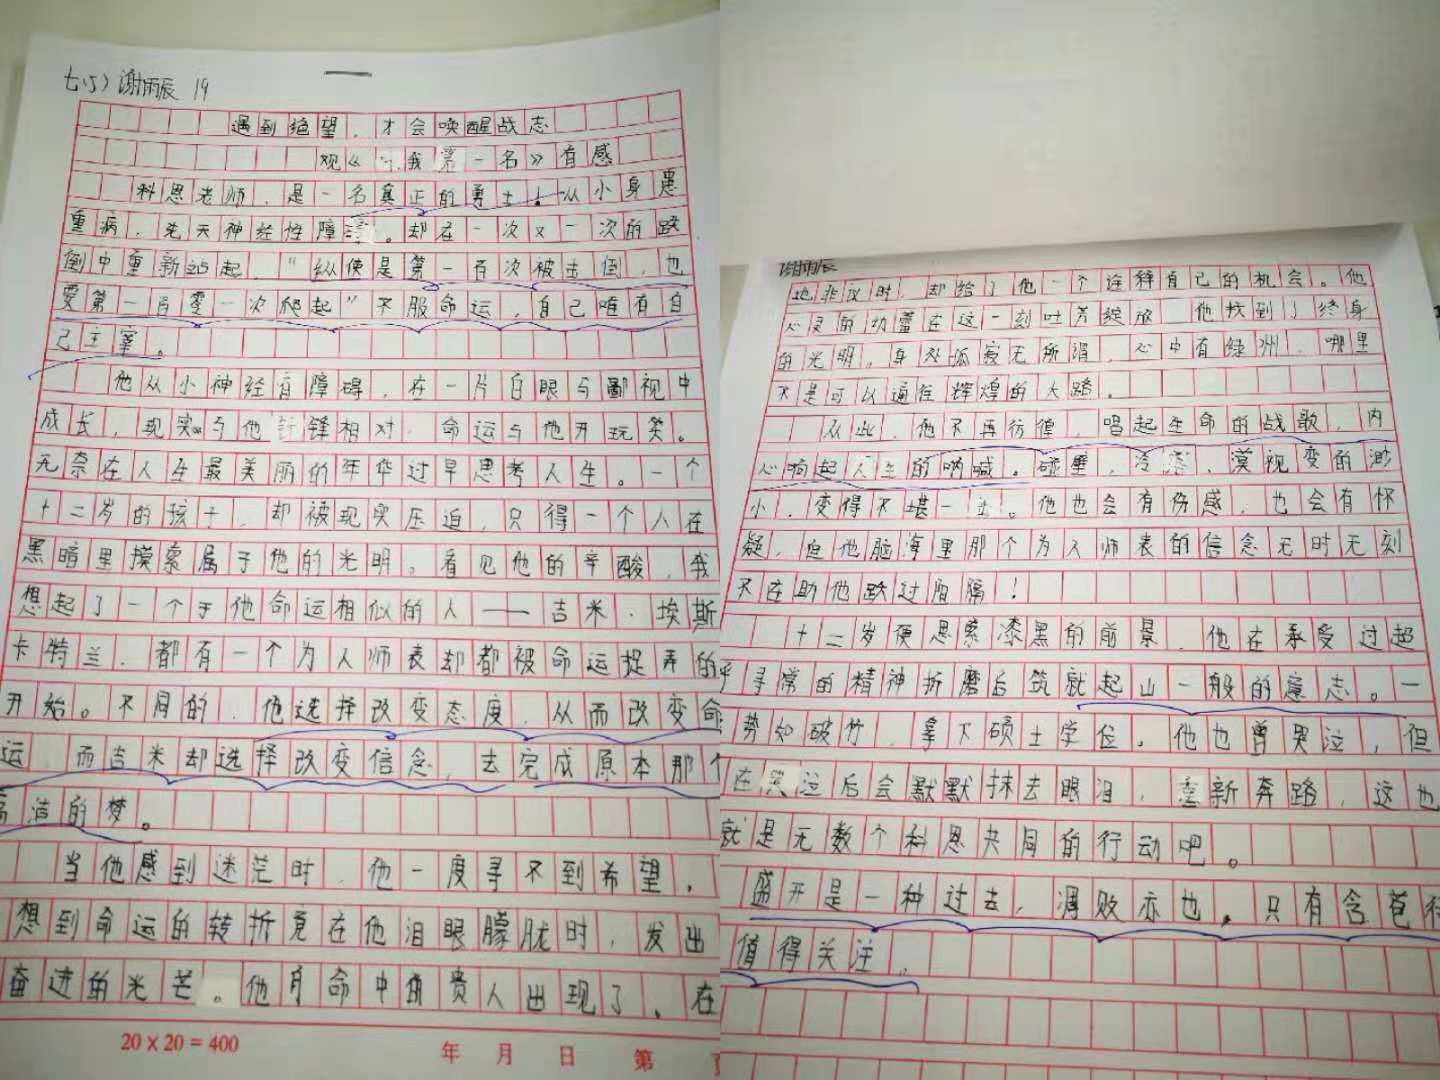 七(5) 谢雨辰 19
遇到绝望,才会唤醒战志
观《 我第一名》有感
科恩老师,是一名真正的勇士!从小身患
重病,先天神经性障碍。却在一次又一次的跌
倒中重新站起,“纵使是第一百次被击倒,也
要第一百零一次爬起”不服命运,自己唯有自
己主宰。
他从小神经有障碍,在一片白眼与鄙视中
成长,现实与他针锋相对,命运与他开玩笑。
无奈在人生最美丽的年华过早思考人生。一个
十二岁的孩子,却被现实压迫,只得一个人在
黑暗里摸索属于他的光明。看见他的辛酸,我
想起了一个于他命运相似的人——吉米·埃斯
卡特兰,都有一个为人师表却都被命运捉弄的
开始。不同的,他选择改变态度,从而改变命
运 而吉米却选择改变信念,去完成原本那个
高洁的梦。
当他感到迷茫时,他一度寻不到希望,
想到命运的转折竟在他泪眼朦胧时,发出
奋进的光芒。他 命中的贵人出现了,在
20×20=400
年 月 日 第 页
谢雨辰
他非议时,却给了他一个诠释自己的机会。他
心灵的幼蕾在这一刻吐芳绽放 他找到了终身
的光明,身处孤寂无所谓,心中有绿洲,哪里
不是可以通往辉煌的大路。
从此,他不再彷徨,唱起生命的战歌,内
心响起人生的呐喊。碰壁,冷落,漠视变的渺
小,变得不堪一击。他也会有伤感,也会有怀
疑,但他脑海里那个为人师表的信念无时无刻
不在助他跃过 隔!
十二岁便思索漆黑的前景,他在承受过超
乎寻常的精神折磨后筑就起山一般的意志。一
势如破竹,拿下硕士学位。他也曾哭泣,但
在哭泣后会默默抹去眼泪,重新奔路,这也
就是无数个科恩共同的行动吧。
盛开是一种过去,凋败亦也,只有含苞待
值得关注。